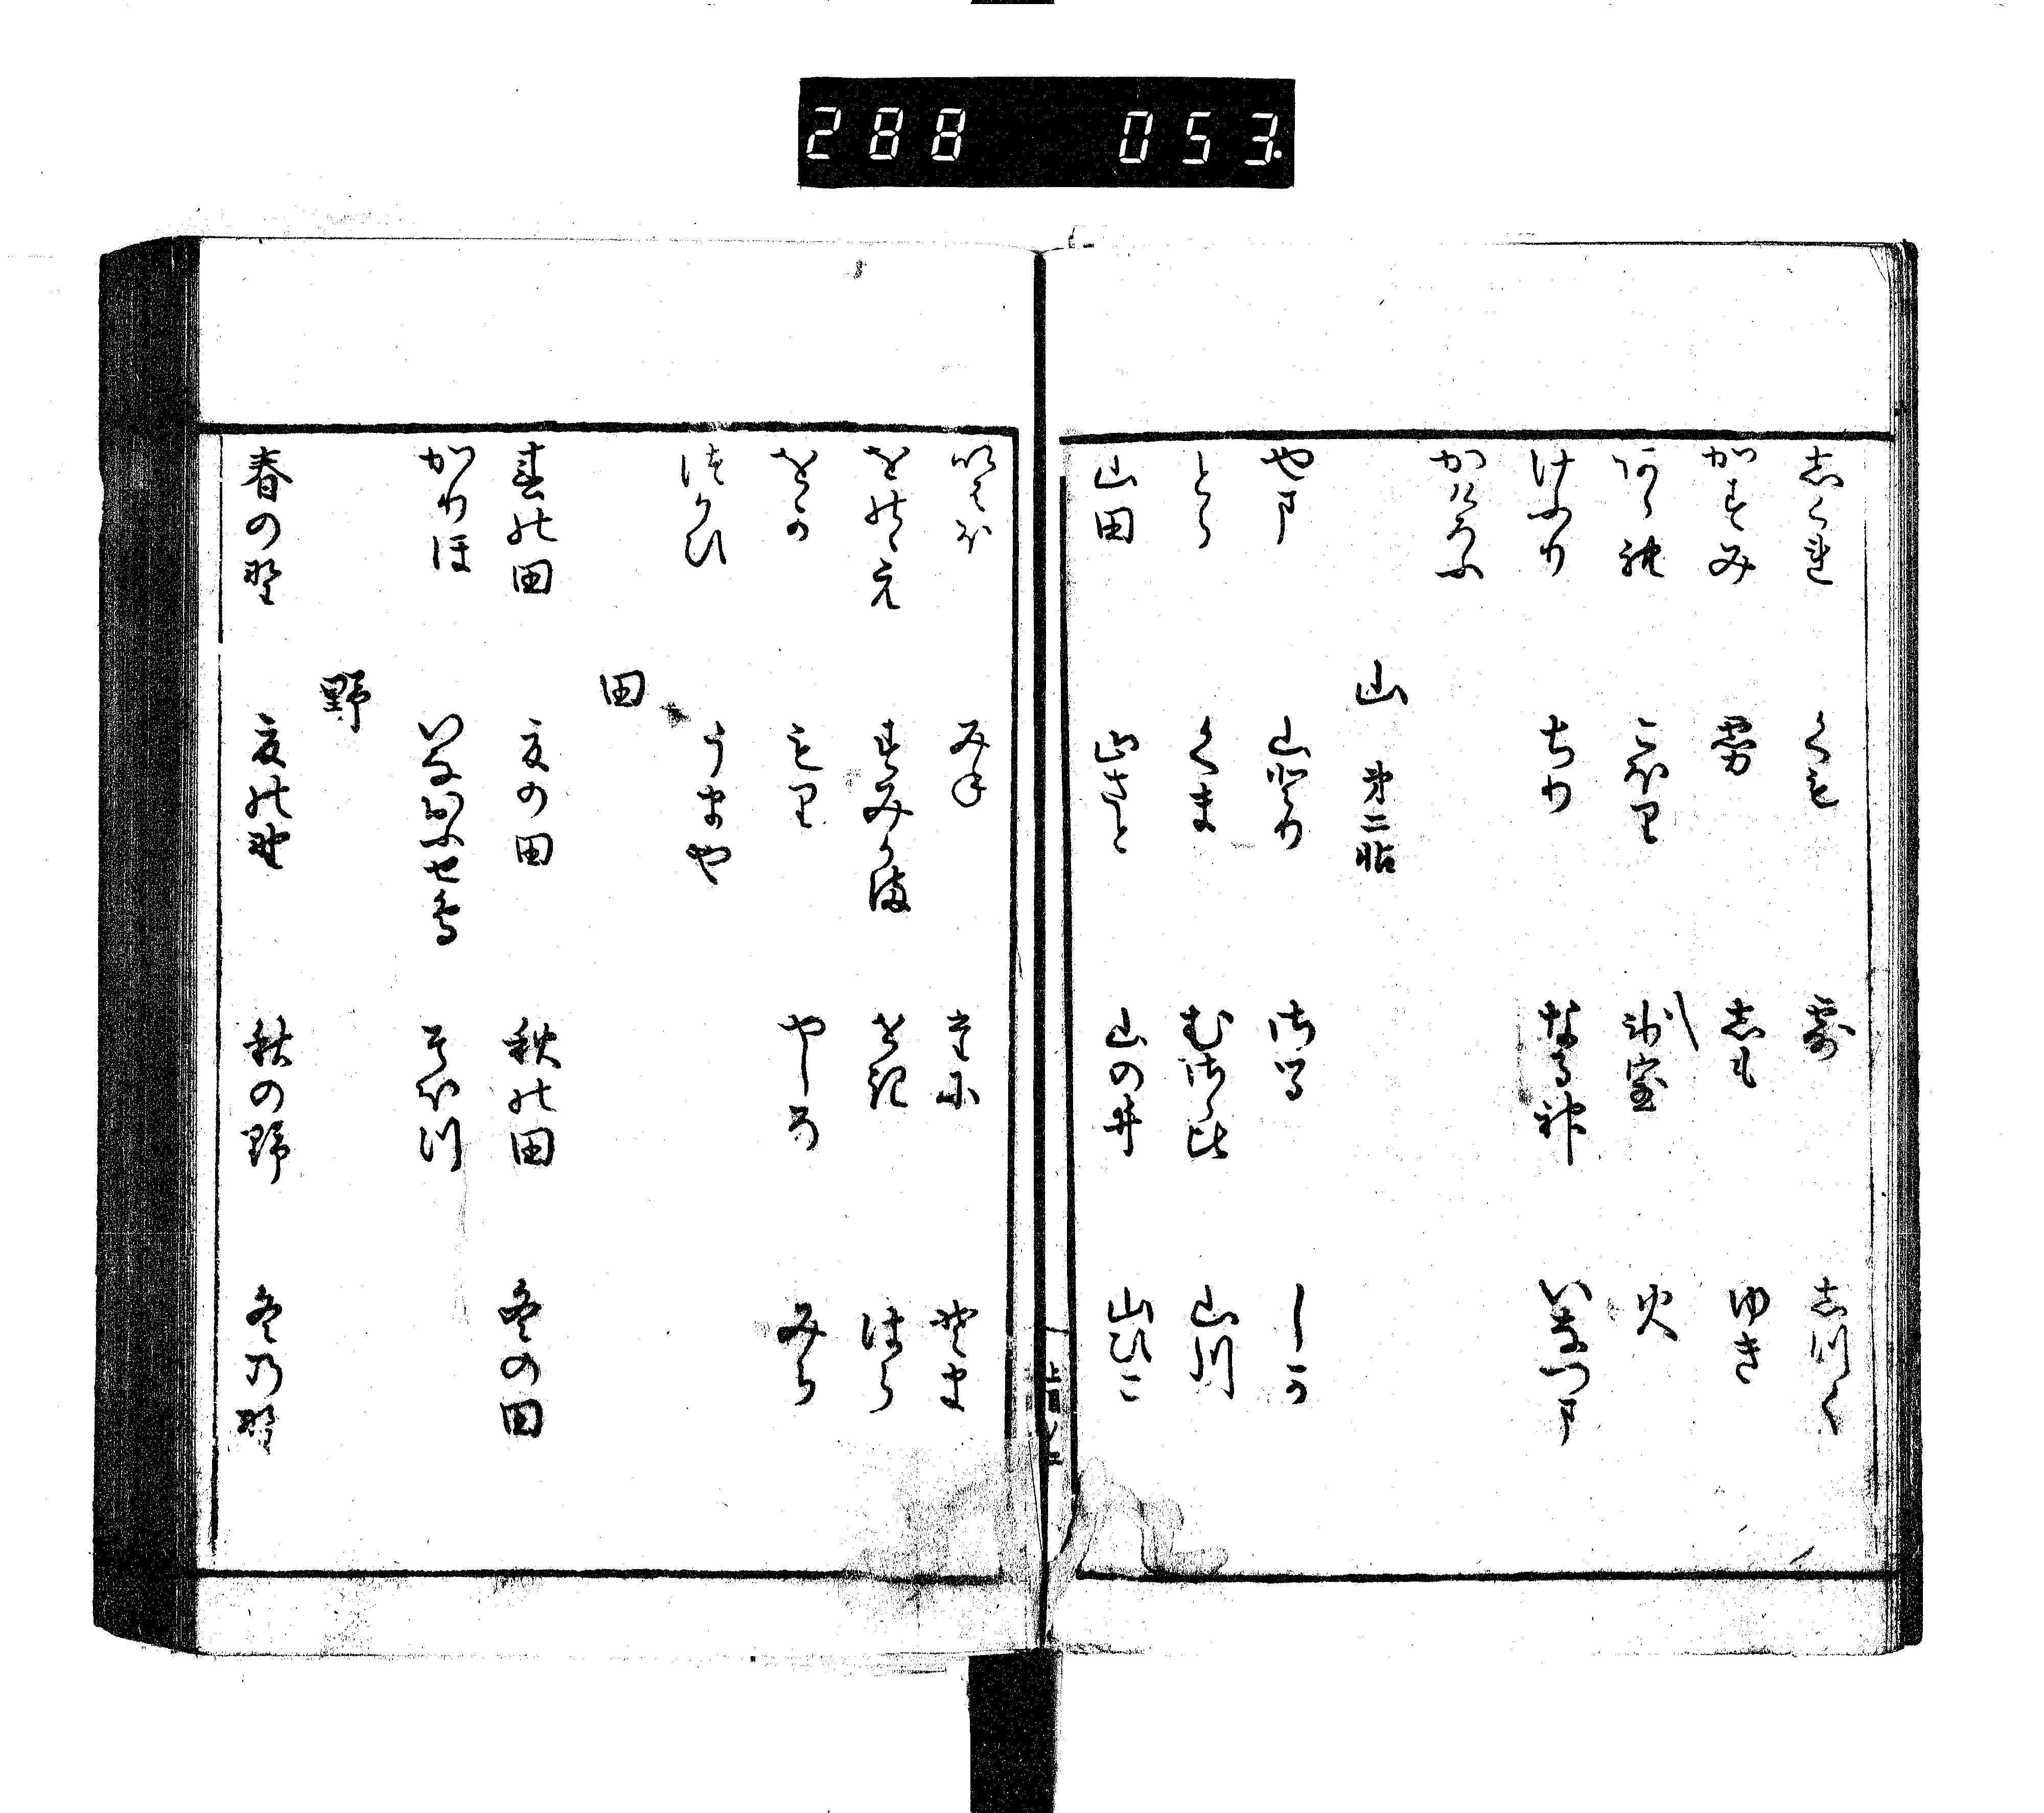 288 053.
志くれ くも 露 志つく
かすみ 霧 志も ゆき
あられ こほり 氷室 火
けふり ちり なる神 いなつま
かけろふ
山 第二帖
やま 山とり さる しか
とら くま むさゝひ 山川
山田 山さと 山の井 山ひこ
いはほ みね たに そま
をのゝえ すみかま せき はら
をか もり やしろ みち
つかひ うまや
田
春の田 夏の田 秋の田 冬の田
かりほ いなおほせ鳥 そほつ
野
春の野 夏の野 秋の野 冬の野